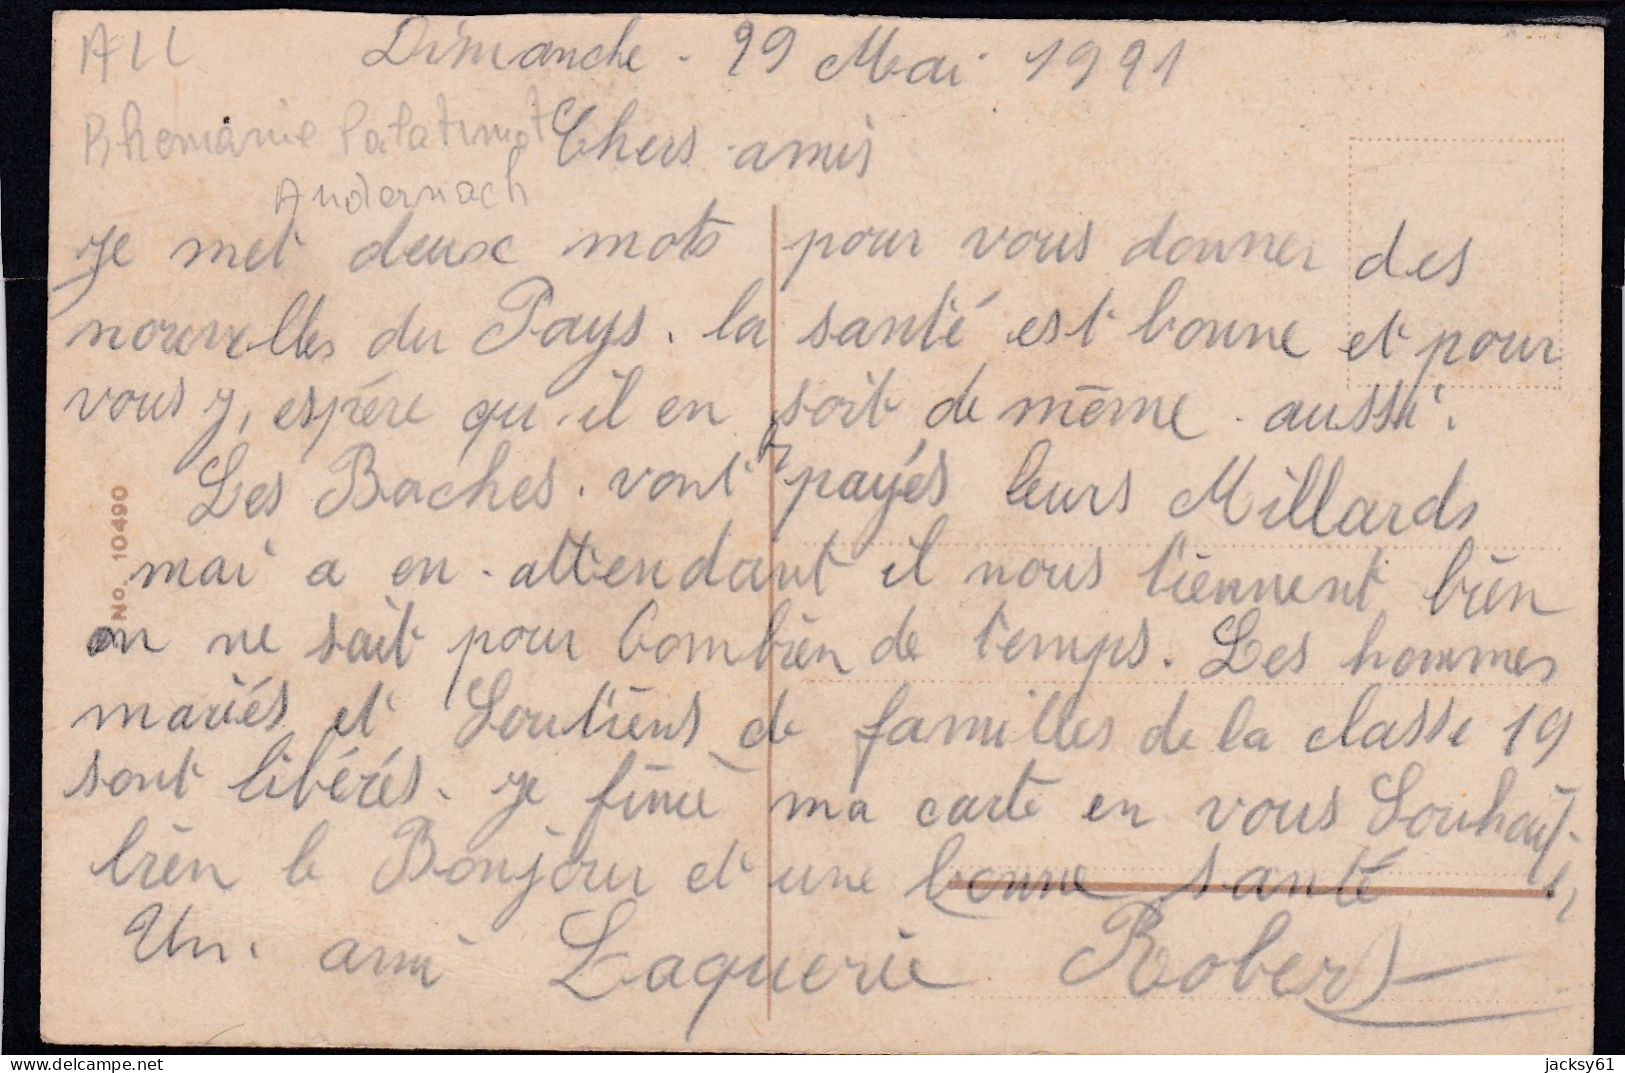 All
Dimanche - 29 Mai 1921
Rhemanie Palatinat
Chers amis
Andernach
Je met deux mots pour vous donner des
nouvelles du Pays. la santé est bonne et pour
vous j, espère qu'il en soit de même aussi.
Les Boches. vont payés leurs Millards
mai a en attendant il nous tiennent bien
on ne sait pour combien de temps. Les hommes
mariés et Soutiens de familles de la classe 19
sont libérés. Je finie ma carte en vous Souhait
bien le Bonjour et une bonne santé
Un ami Laquerie Robert
No. 10490
jacksy61
delcampe.net